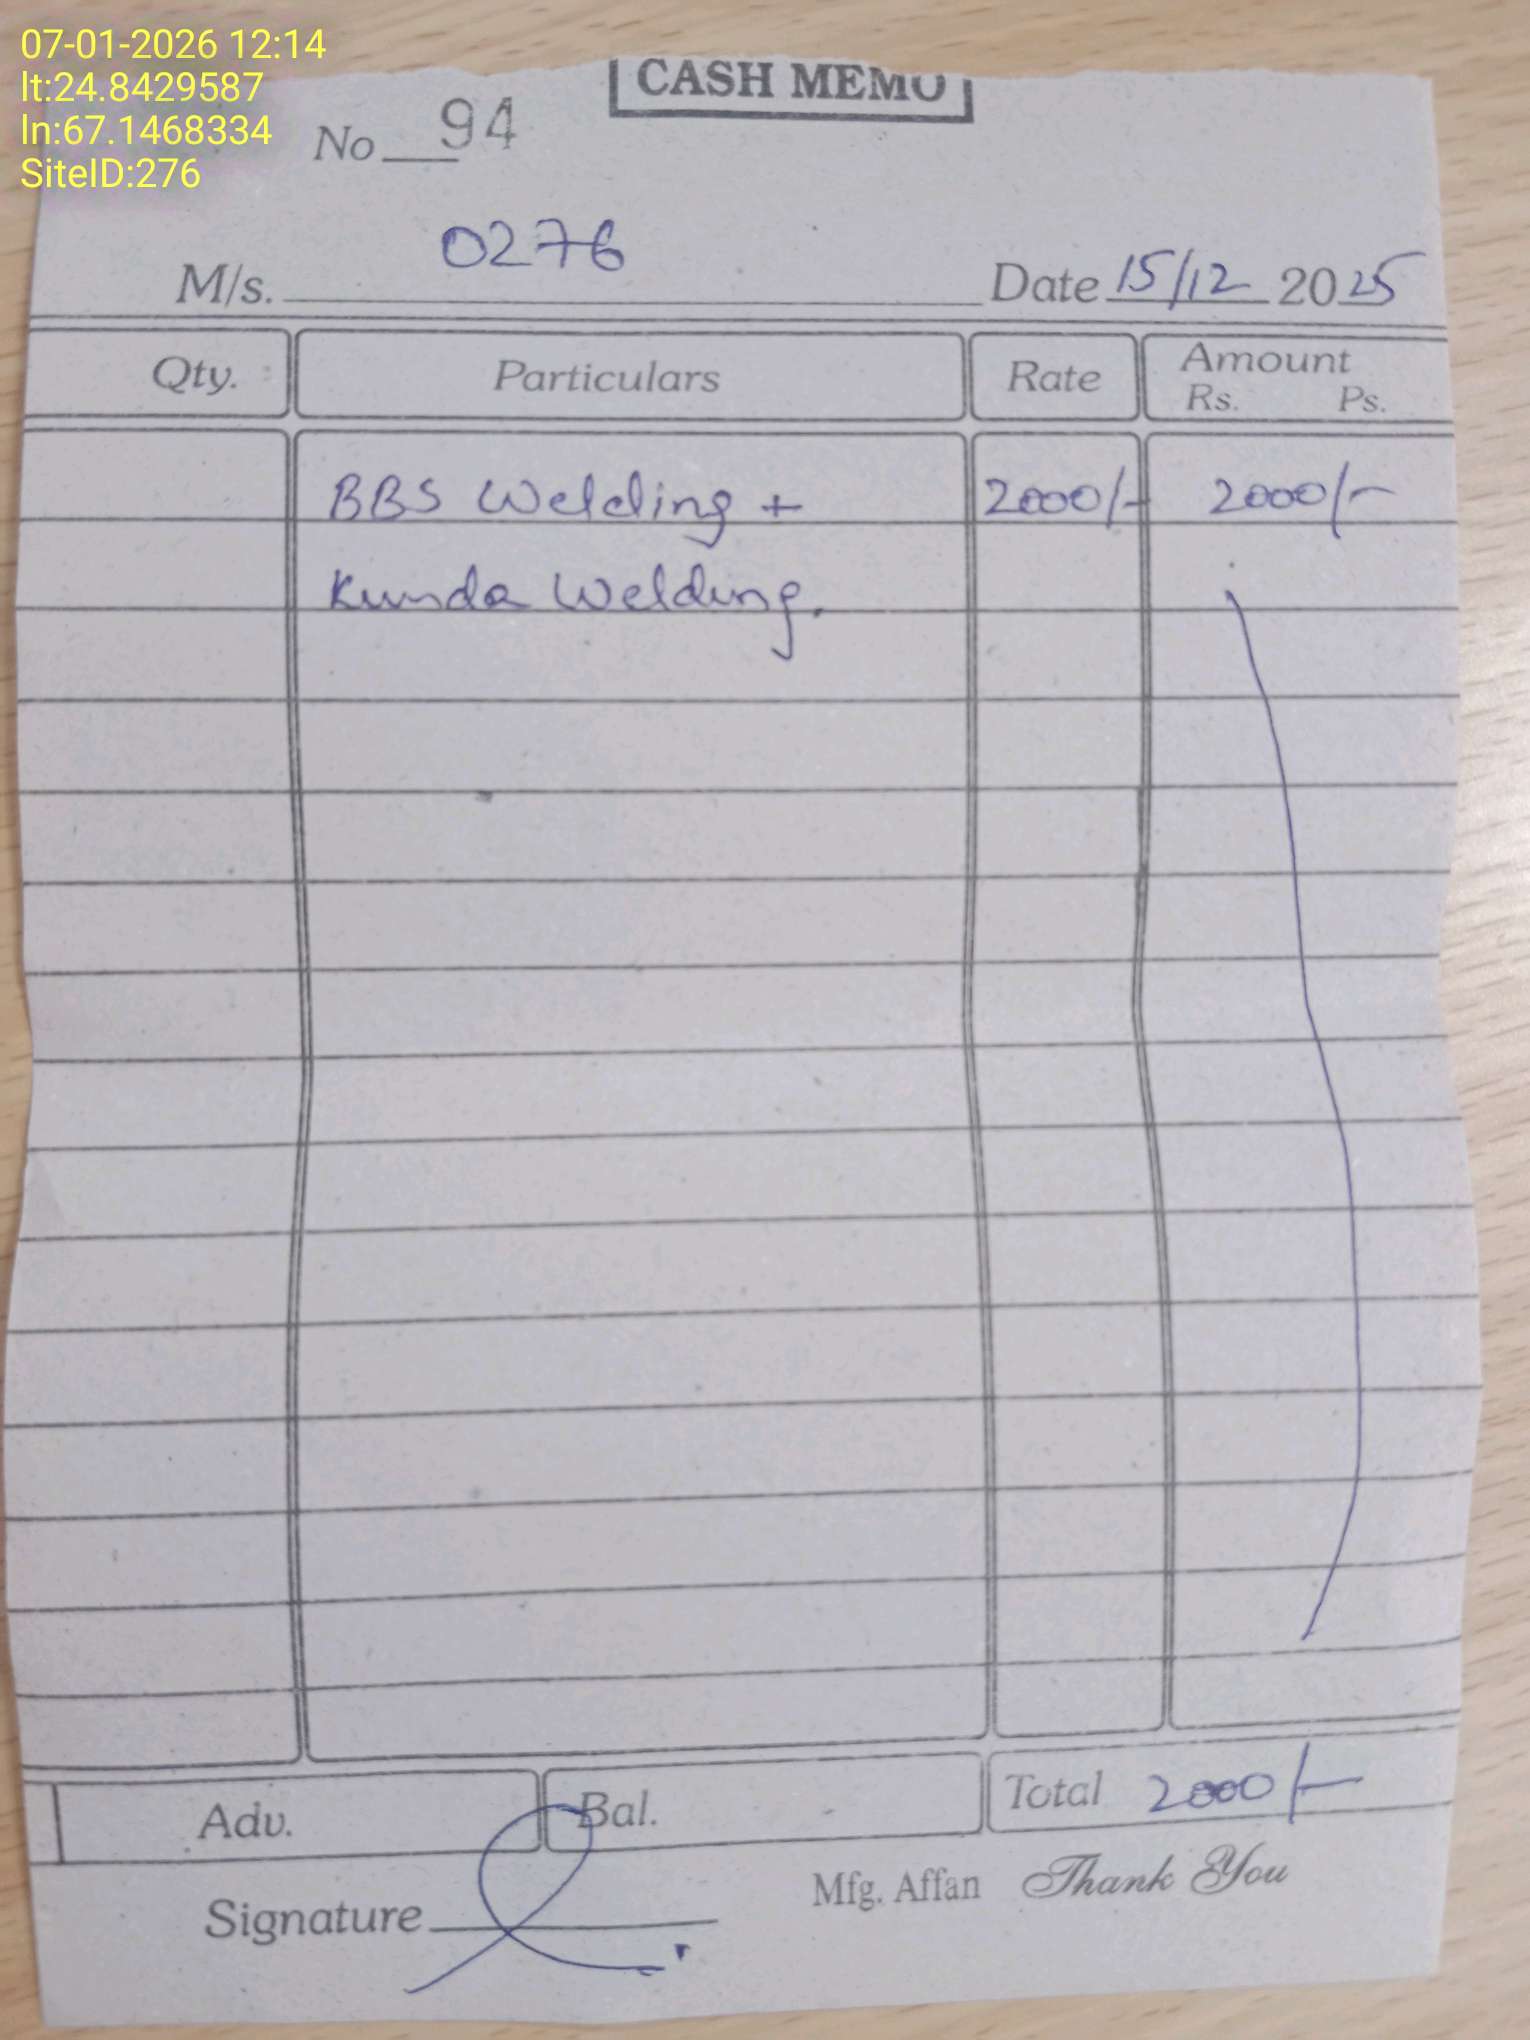 07-01-2026 12:14
lt:24.8429587
ln:67.1468334
SiteID:276
CASH MEMO
No 94
M/s. 0276 Date 15/12 2025
Qty. Particulars Rate Amount
Rs. Ps.
BBS Welding + 2000/- 2000/-
Kunda Welding.
Adv. Bal. Total 2000/-
Signature Mfg. Affan Thank You